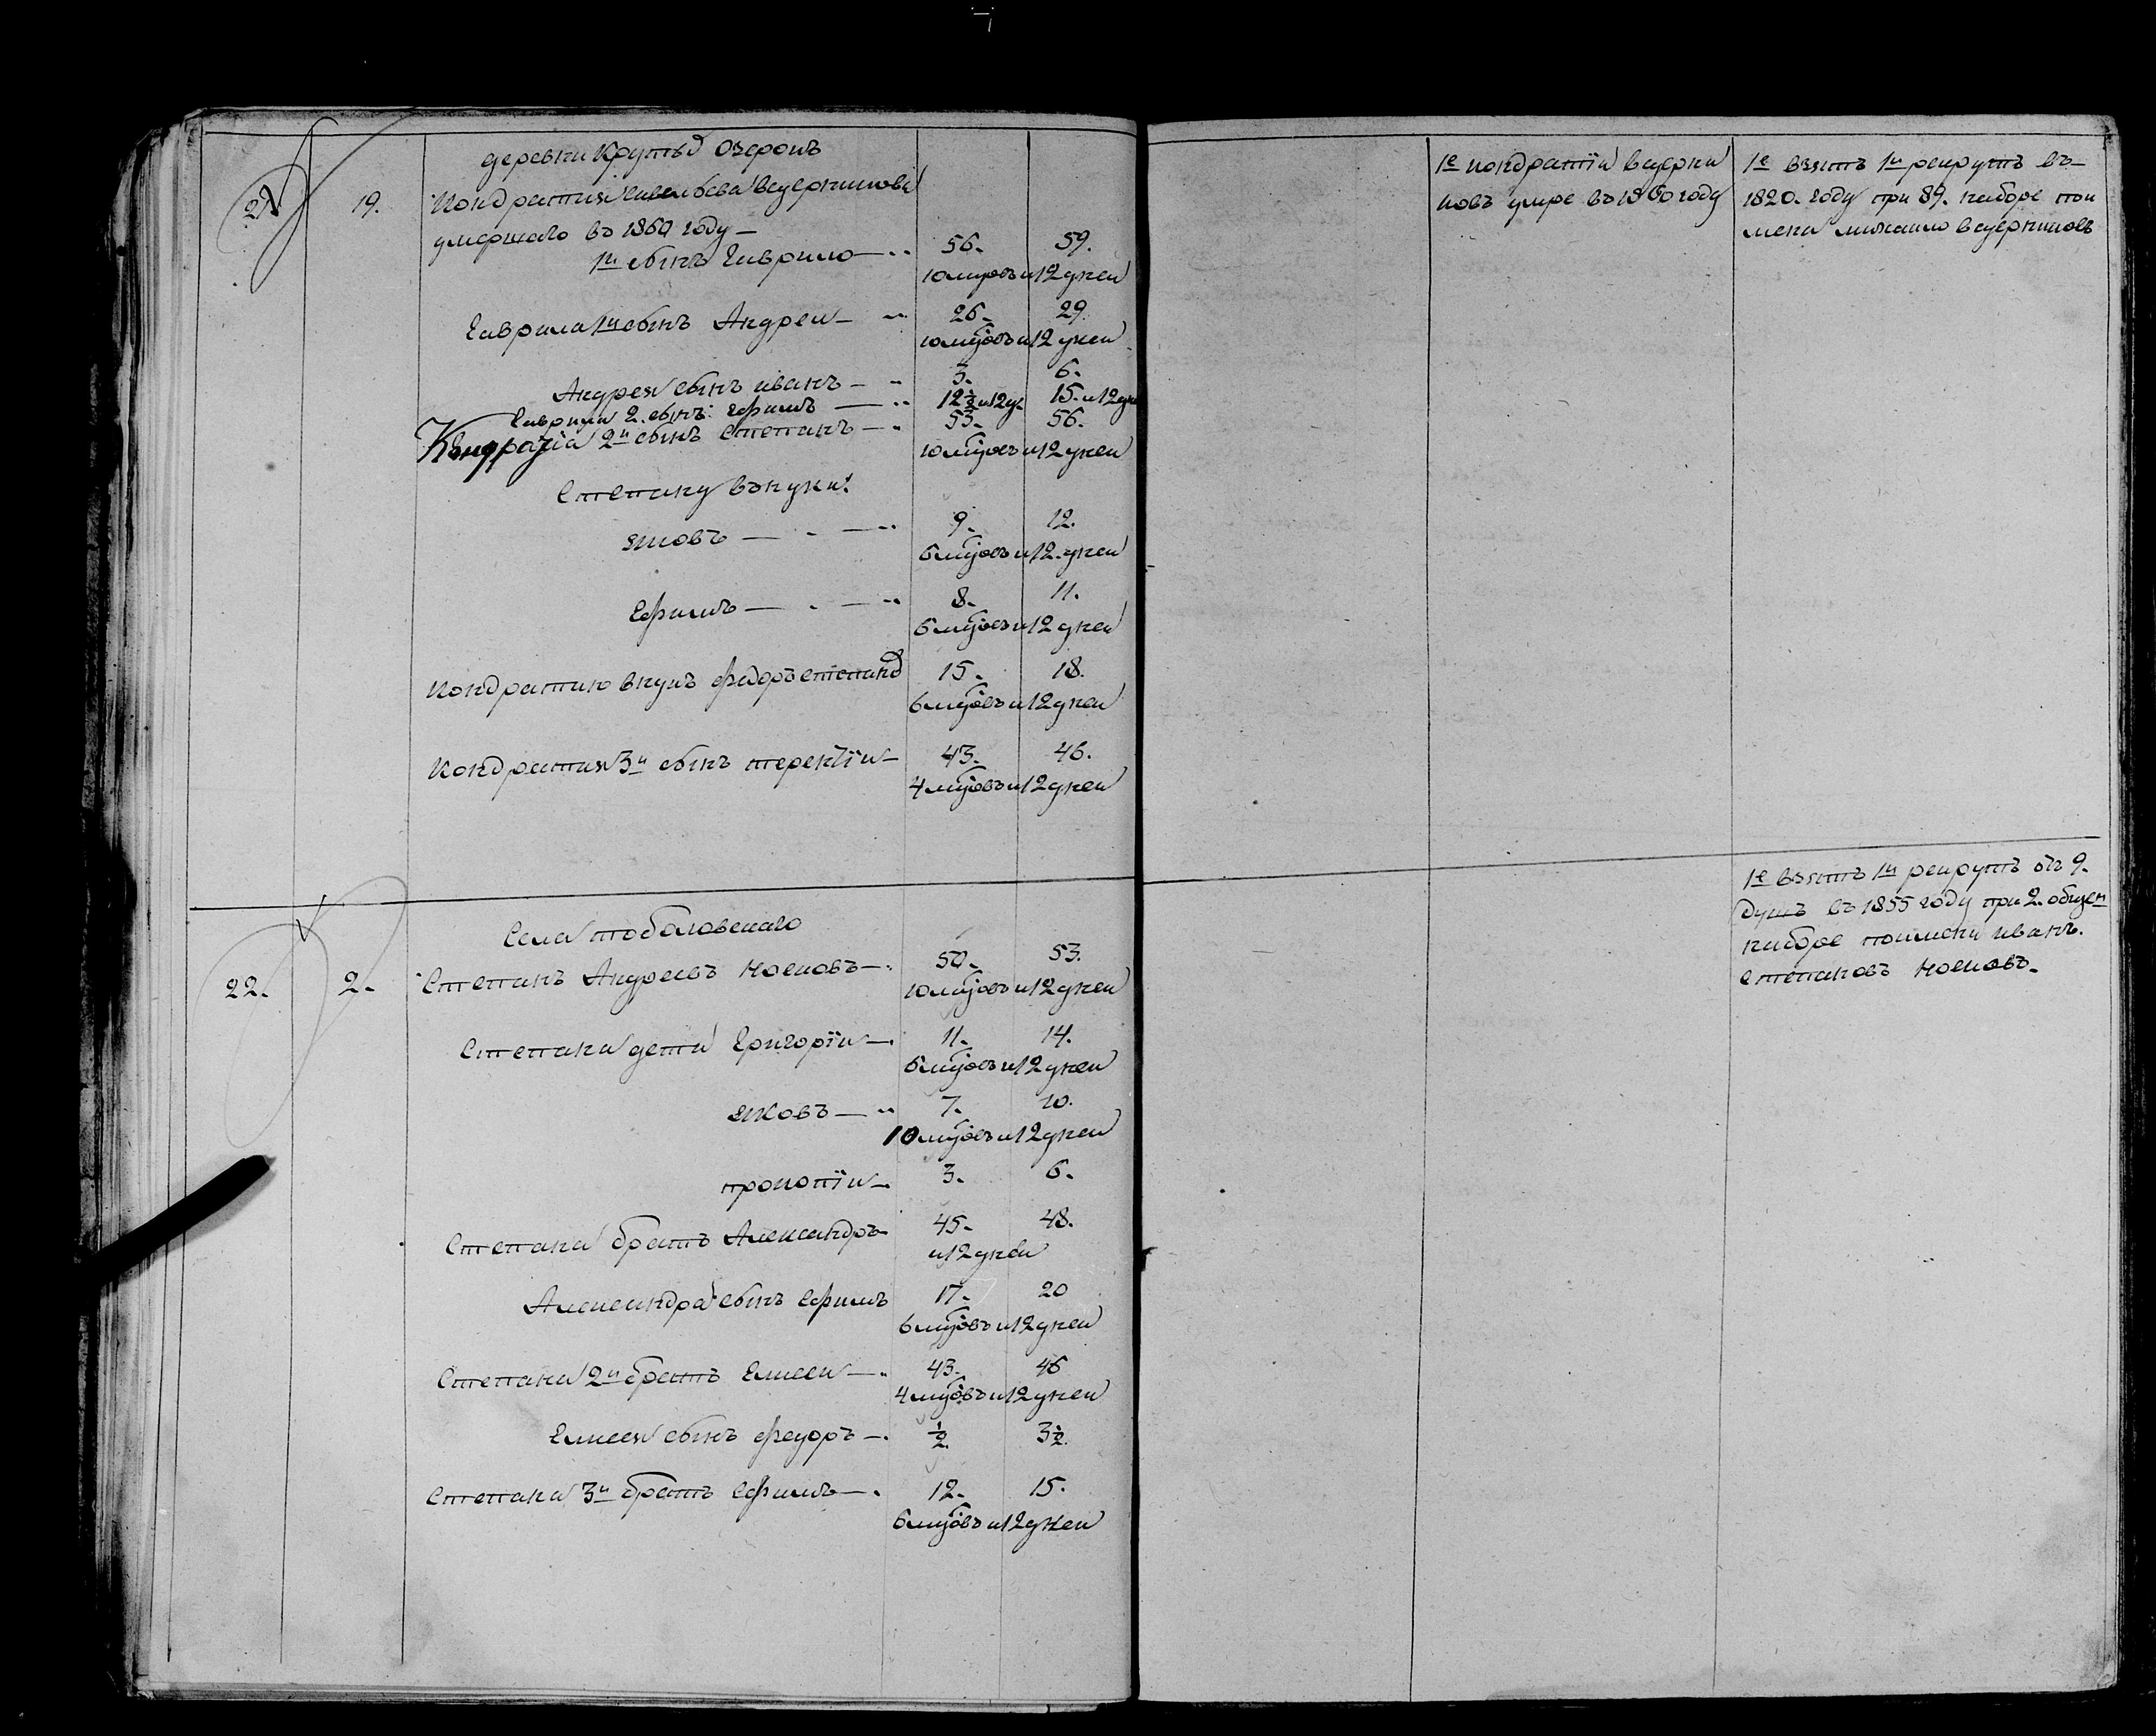 деревни Крутыхъ Озерокъ
21
19.
Кондратия Савельева Ведерникова
умершаго въ 1860 году —
1й сынъ Гаврило — 56. 59.
10 мцовъ и 12 дней
Гаврила 1й сынъ Андреи — 26. 29.
10 мцовъ и 12 дней
Андрея сынъ иванъ — 3. 6.
Гаврила 2. сынъ Ефимъ — 12½ и 12 д. 15. и 12 дн
Кондратіа 2й сынъ степанъ — 53. 56.
10 мцовъ и 12 дней
степану внуки:
яковъ — 9. 12.
6 мцовъ и 12. дней
Ефимъ — 8. 11.
6 мцовъ и 12 дней
Кондратию внукъ федоръ степанъ 15. 18.
6 мцовъ и 12 дней
Кондратия 3й сынъ терентїи — 43. 46.
4 мцовъ и 12 дней
Села тоболовскаго
22. 2. степанъ Андреевъ носковъ — 50. 53.
10 мцовъ и 12 дней
степана дети Григорїи — 11. 14.
6 мцовъ и 12 дней
яковъ — 7. 10.
10 мцовъ и 12 дней
прокопїи — 3. 6.
степана братъ Александръ 45. 48.
и 12 дней
Александра сынъ ефимъ 17. 20
6 мцовъ и 12 дней
степана 2й братъ Елисеи — 43. 46
4 мцовъ и 12 дней
Елисея сынъ федоръ — ½. 3½.
степана 3й братъ ефимъ — 12. 15.
6 мцовъ и 12 дней
1е кондратїи ведерни
ковъ умре въ 1860 году
1е взятъ 1й рекрутъ въ
1820. году при 89. наборе пои
мени михаило ведерниковъ
1е взятъ 1й рекрутъ съ 9.
душъ въ 1855 году при 2. общем
наборе поимени иванъ.
степановъ носковъ.